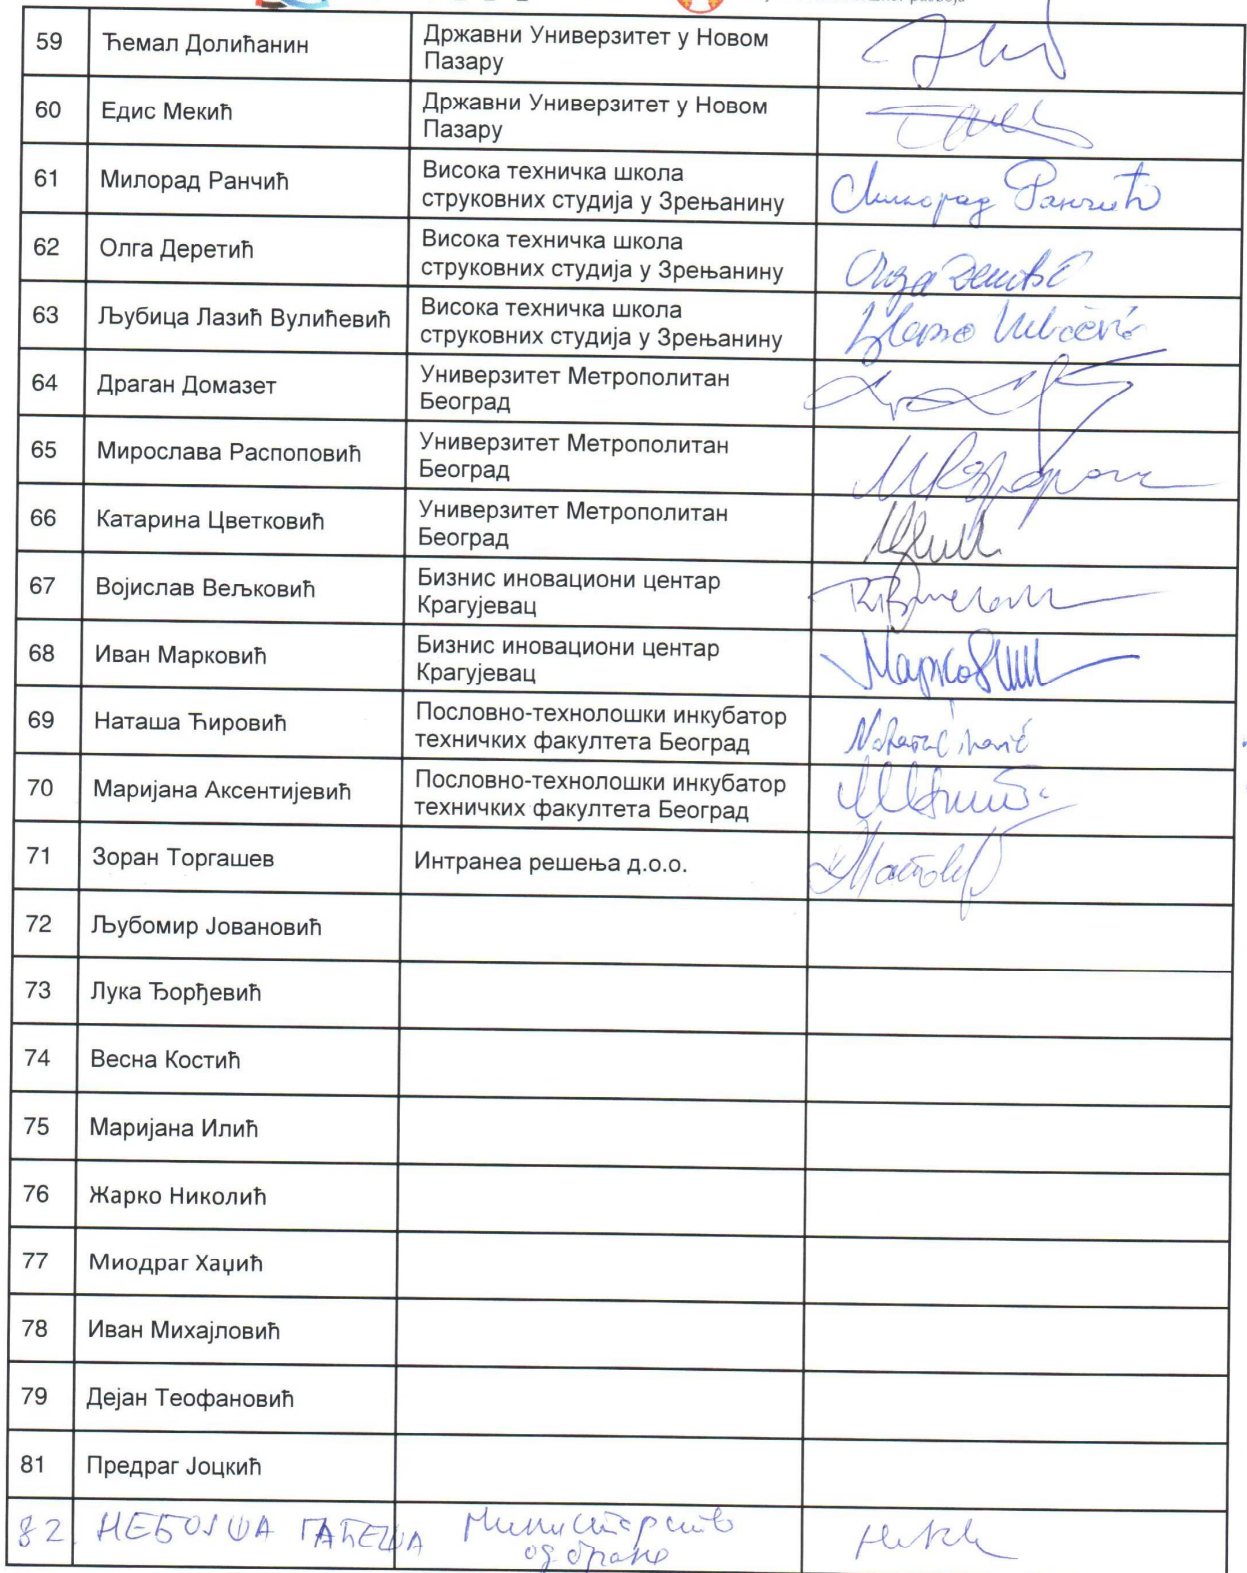 59 Ћемал Долићанин Државни Универзитет у Новом
Пазару
60 Едис Мекић Државни Универзитет у Новом
Пазару
61 Милорад Ранчић Висока техничка школа
струковних студија у Зрењанину Милорад Ранчић
62 Олга Деретић Висока техничка школа
струковних студија у Зрењанину
63 Љубица Лазић Вулићевић Висока техничка школа
струковних студија у Зрењанину
64 Драган Домазет Универзитет Метрополитан
Београд
65 Мирослава Распоповић Универзитет Метрополитан
Београд
66 Катарина Цветковић Универзитет Метрополитан
Београд
67 Војислав Вељковић Бизнис иновациони центар
Крагујевац
68 Иван Марковић Бизнис иновациони центар
Крагујевац
69 Наташа Ћировић Пословно-технолошки инкубатор
техничких факултета Београд
70 Маријана Аксентијевић Пословно-технолошки инкубатор
техничких факултета Београд
71 Зоран Торгашев Интранеа решења д.о.о.
72 Љубомир Јовановић
73 Лука Ђорђевић
74 Весна Костић
75 Маријана Илић
76 Жарко Николић
77 Миодраг Хаџић
78 Иван Михајловић
79 Дејан Теофановић
81 Предраг Јоцкић
82. НЕБОЈША ГАЋЕША Министарство
одбране